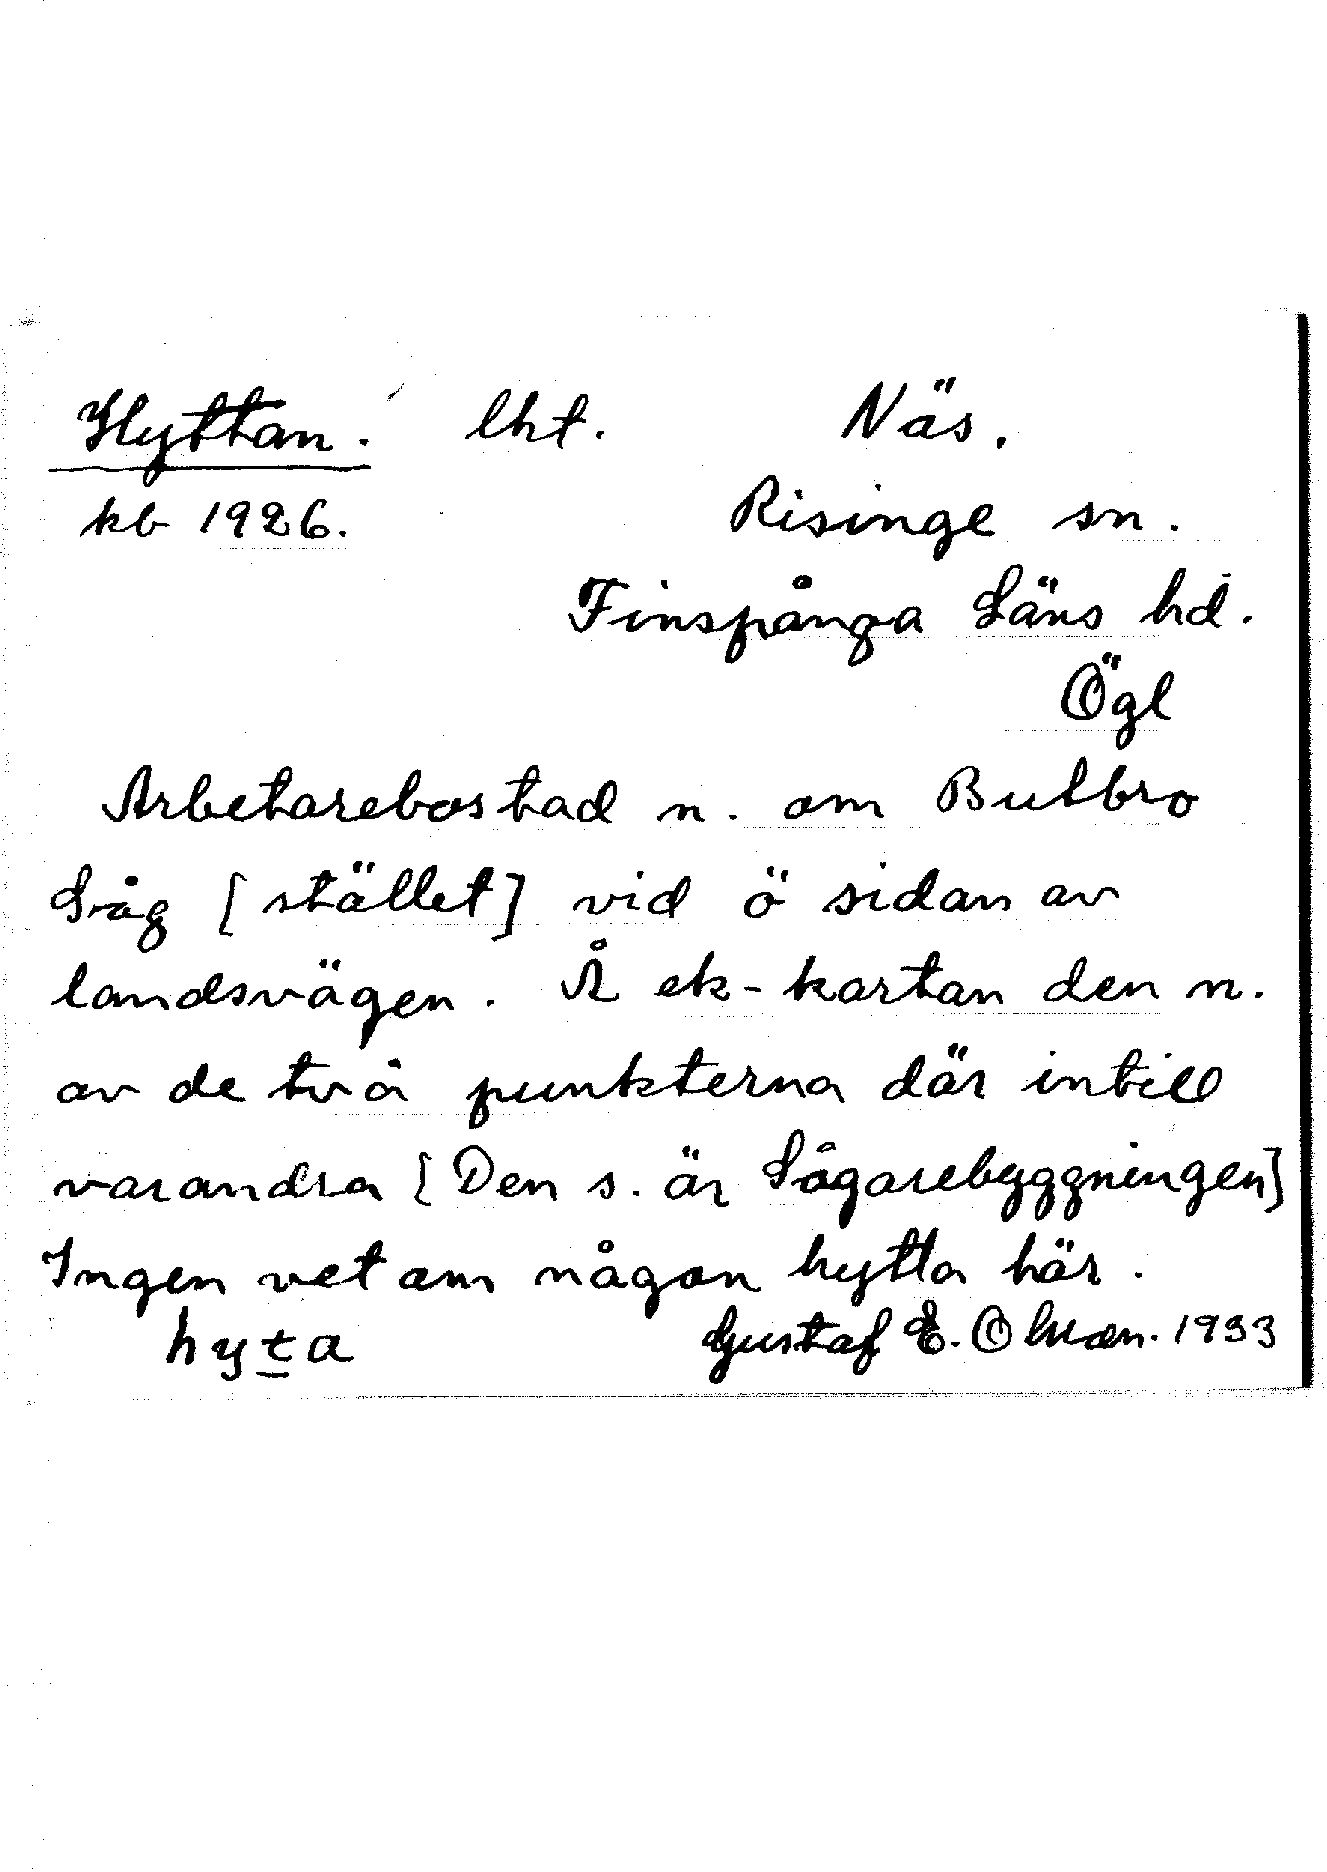 Hyttan. lht. Näs.
kb 1926. Risinge sn.
Finspånga Läns hd.
Ögl
Arbetarebostad n. om Butbro
Såg [stället] vid ö sidan av
landsvägen. Å ek-kartan den n.
av de två punkterna där intill
varandra [Den s. är Sågarebyggningen]
Ingen vet om någon hytta här.
hyta Gustaf E. Ohlson. 1933